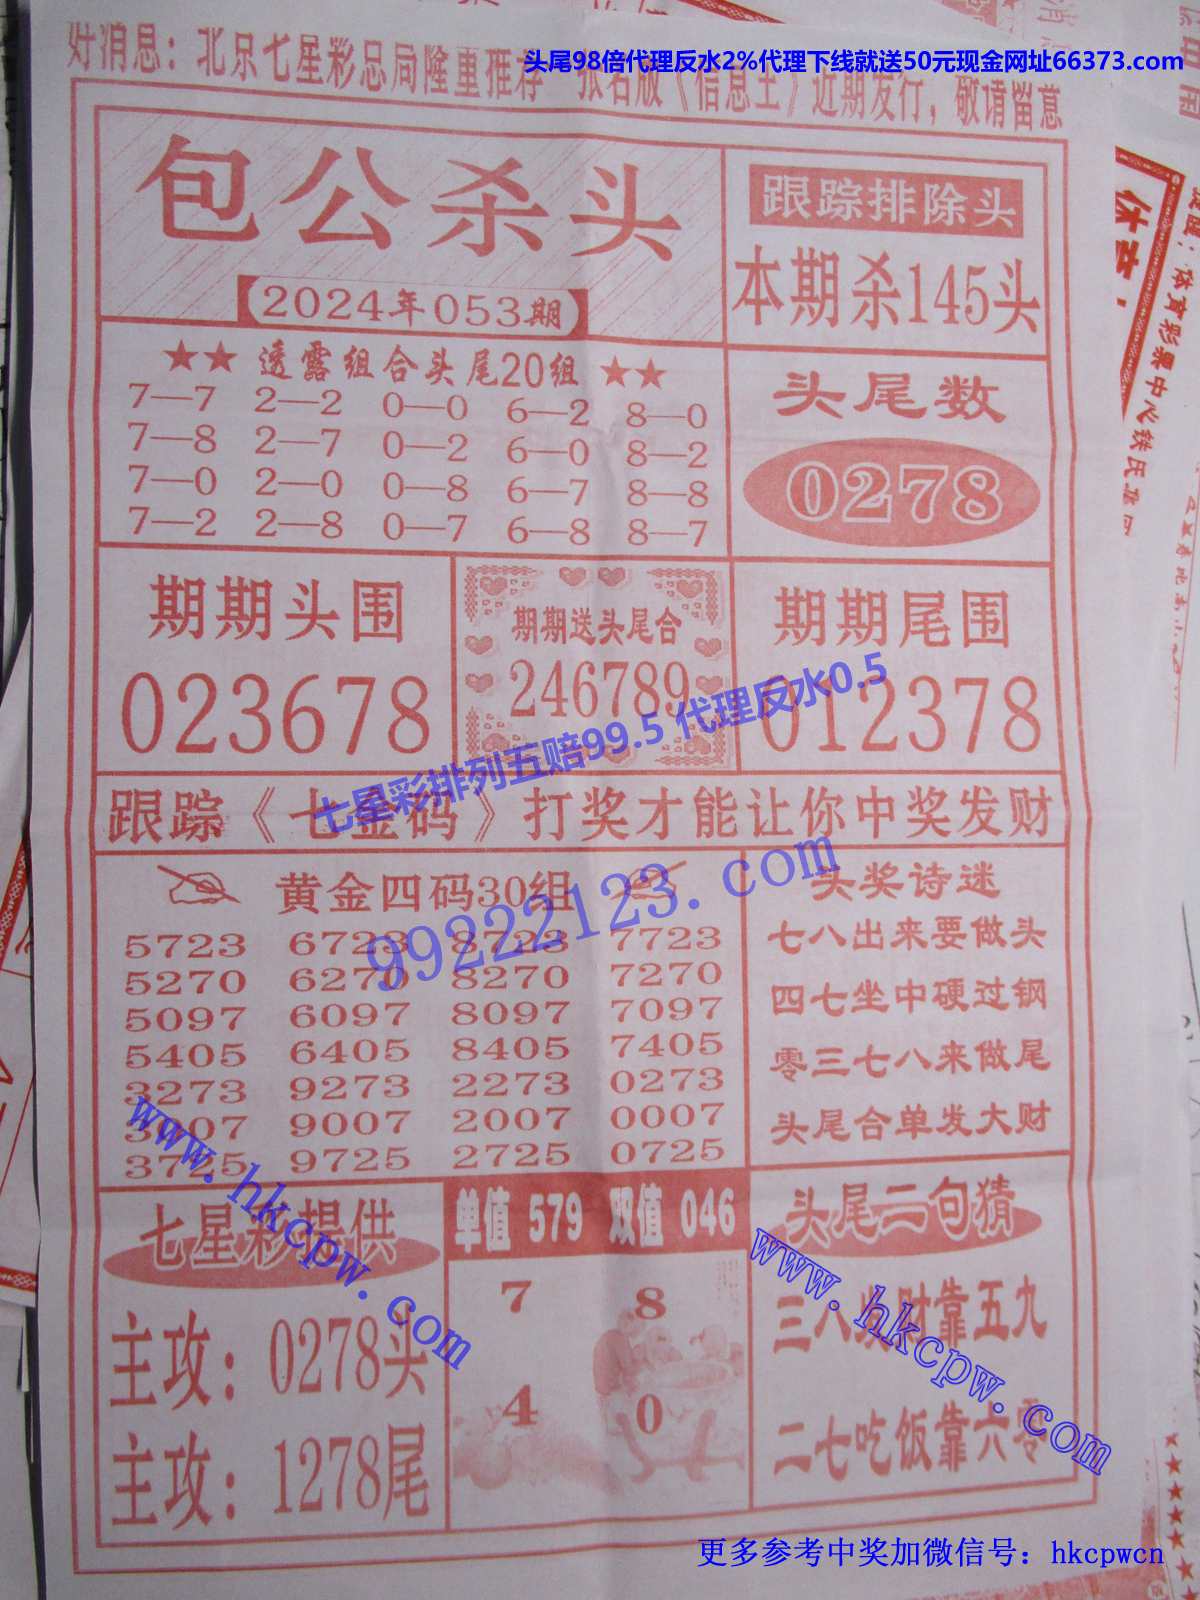 好消息：北京七星彩总局隆重推荐 张石版《信息王》近期发行，敬请留意
头尾98倍代理反水2%代理下线就送50元现金网址66373.com
包公杀头
【2024年053期】
跟踪排除头
本期杀145头
★★透露组合头尾20组★★
7—7 2—2 0—0 6—2 8—0
7—8 2—7 0—2 6—0 8—2
7—0 2—0 0—8 6—7 8—8
7—2 2—8 0—7 6—8 8—7
头尾数
0278
期期头围
023678
期期送头尾合
246789
期期尾围
012378
七星彩排列五赔99.5 代理反水0.5
跟踪《七金码》打奖才能让你中奖发财
黄金四码30组
99222123.com
5723 6723 8723 7723
5270 6270 8270 7270
5097 6097 8097 7097
5405 6405 8405 7405
3273 9273 2273 0273
3007 9007 2007 0007
3725 9725 2725 0725
头奖诗迷
七八出来要做头
四七坐中硬过钢
零三七八来做尾
头尾合单发大财
www.hkcpw.com
七星彩提供
主攻：0278头
主攻：1278尾
单值 579 双值 046
7 8
4 0
头尾二句猜
www.hkcpw.com
三八发财靠五九
二七吃饭靠六零
更多参考中奖加微信号：hkcpwcn
休育彩票中心铁氏